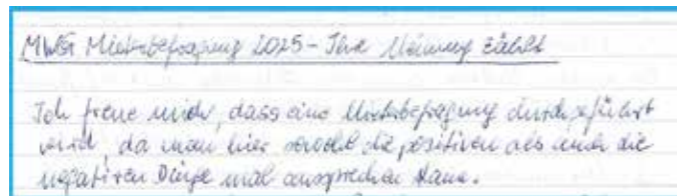 MWG Mieterbefragung 2025 - Ihre Meinung zählt
Ich freue mich, dass eine Mieterbefragung durchgeführt
wird, da man hier sowohl die positiven als auch die
negativen Dinge mal ansprechen kann.